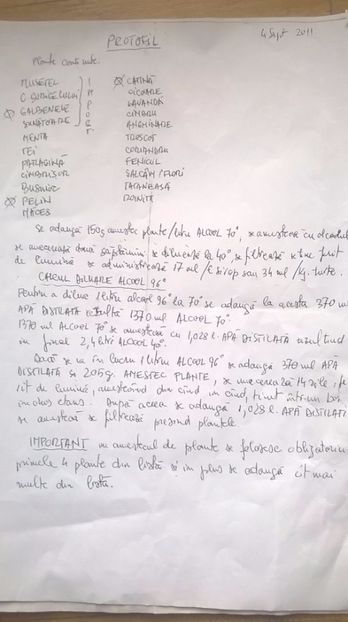 4 Sept 2011
PROTOFIL
Plante continute:
MUSETEL
C. SURICELULUI
GALBENELE
SUNATOARE
IMPORT
MENTA
TEI
PATLAGINĂ
CIMBRISOR
BUSUIOC
PELIN
MĂCES
CATINĂ
CICOARE
LAVANDĂ
CIMBRU
ANGHINARE
TROSCOT
CORIANDRU
FENICUL
SALCÂM/FLORI
TATANEASA
ROINITA
Se adaugă 150g amestec plante/litru ALCOOL 70°, se amesteca cu alcoolul
se macerează două săptămîni se diluează la 40°, se filtrează se tine ferit
de lumină se administrează 17 ml/l sirop sau 34 ml/kg. turte.
CALCUL DILUARE ALCOOL 96°
Pentru a dilua 1 litru alcool 96° la 70° se adaugă la acesta 370 ml
APĂ DISTILATĂ rezultă 1370 ml ALCOOL 70°.
1370 ml ALCOOL 70° se amestecă cu 1,028 l. APĂ DISTILATĂ rezultînd
în final 2,4 litri ALCOOL 40°.
Dacă se ia în lucru 1 litru ALCOOL 96° se adaugă 370 ml APĂ
DISTILATĂ și 205 g. AMESTEC PLANTE, se macerează 14 zile, fe
rit de lumină, amestecînd din cînd în cînd, tinut intr-un vas
inchis etans. După aceea se adaugă 1,028 l. APĂ DISTILATĂ
se amestecă se filtrează presînd plantele.
IMPORTANT în amestecul de plante se folosesc obligatoriu
primele 4 plante din listă și în plus se adaugă cît mai
multe din listă.